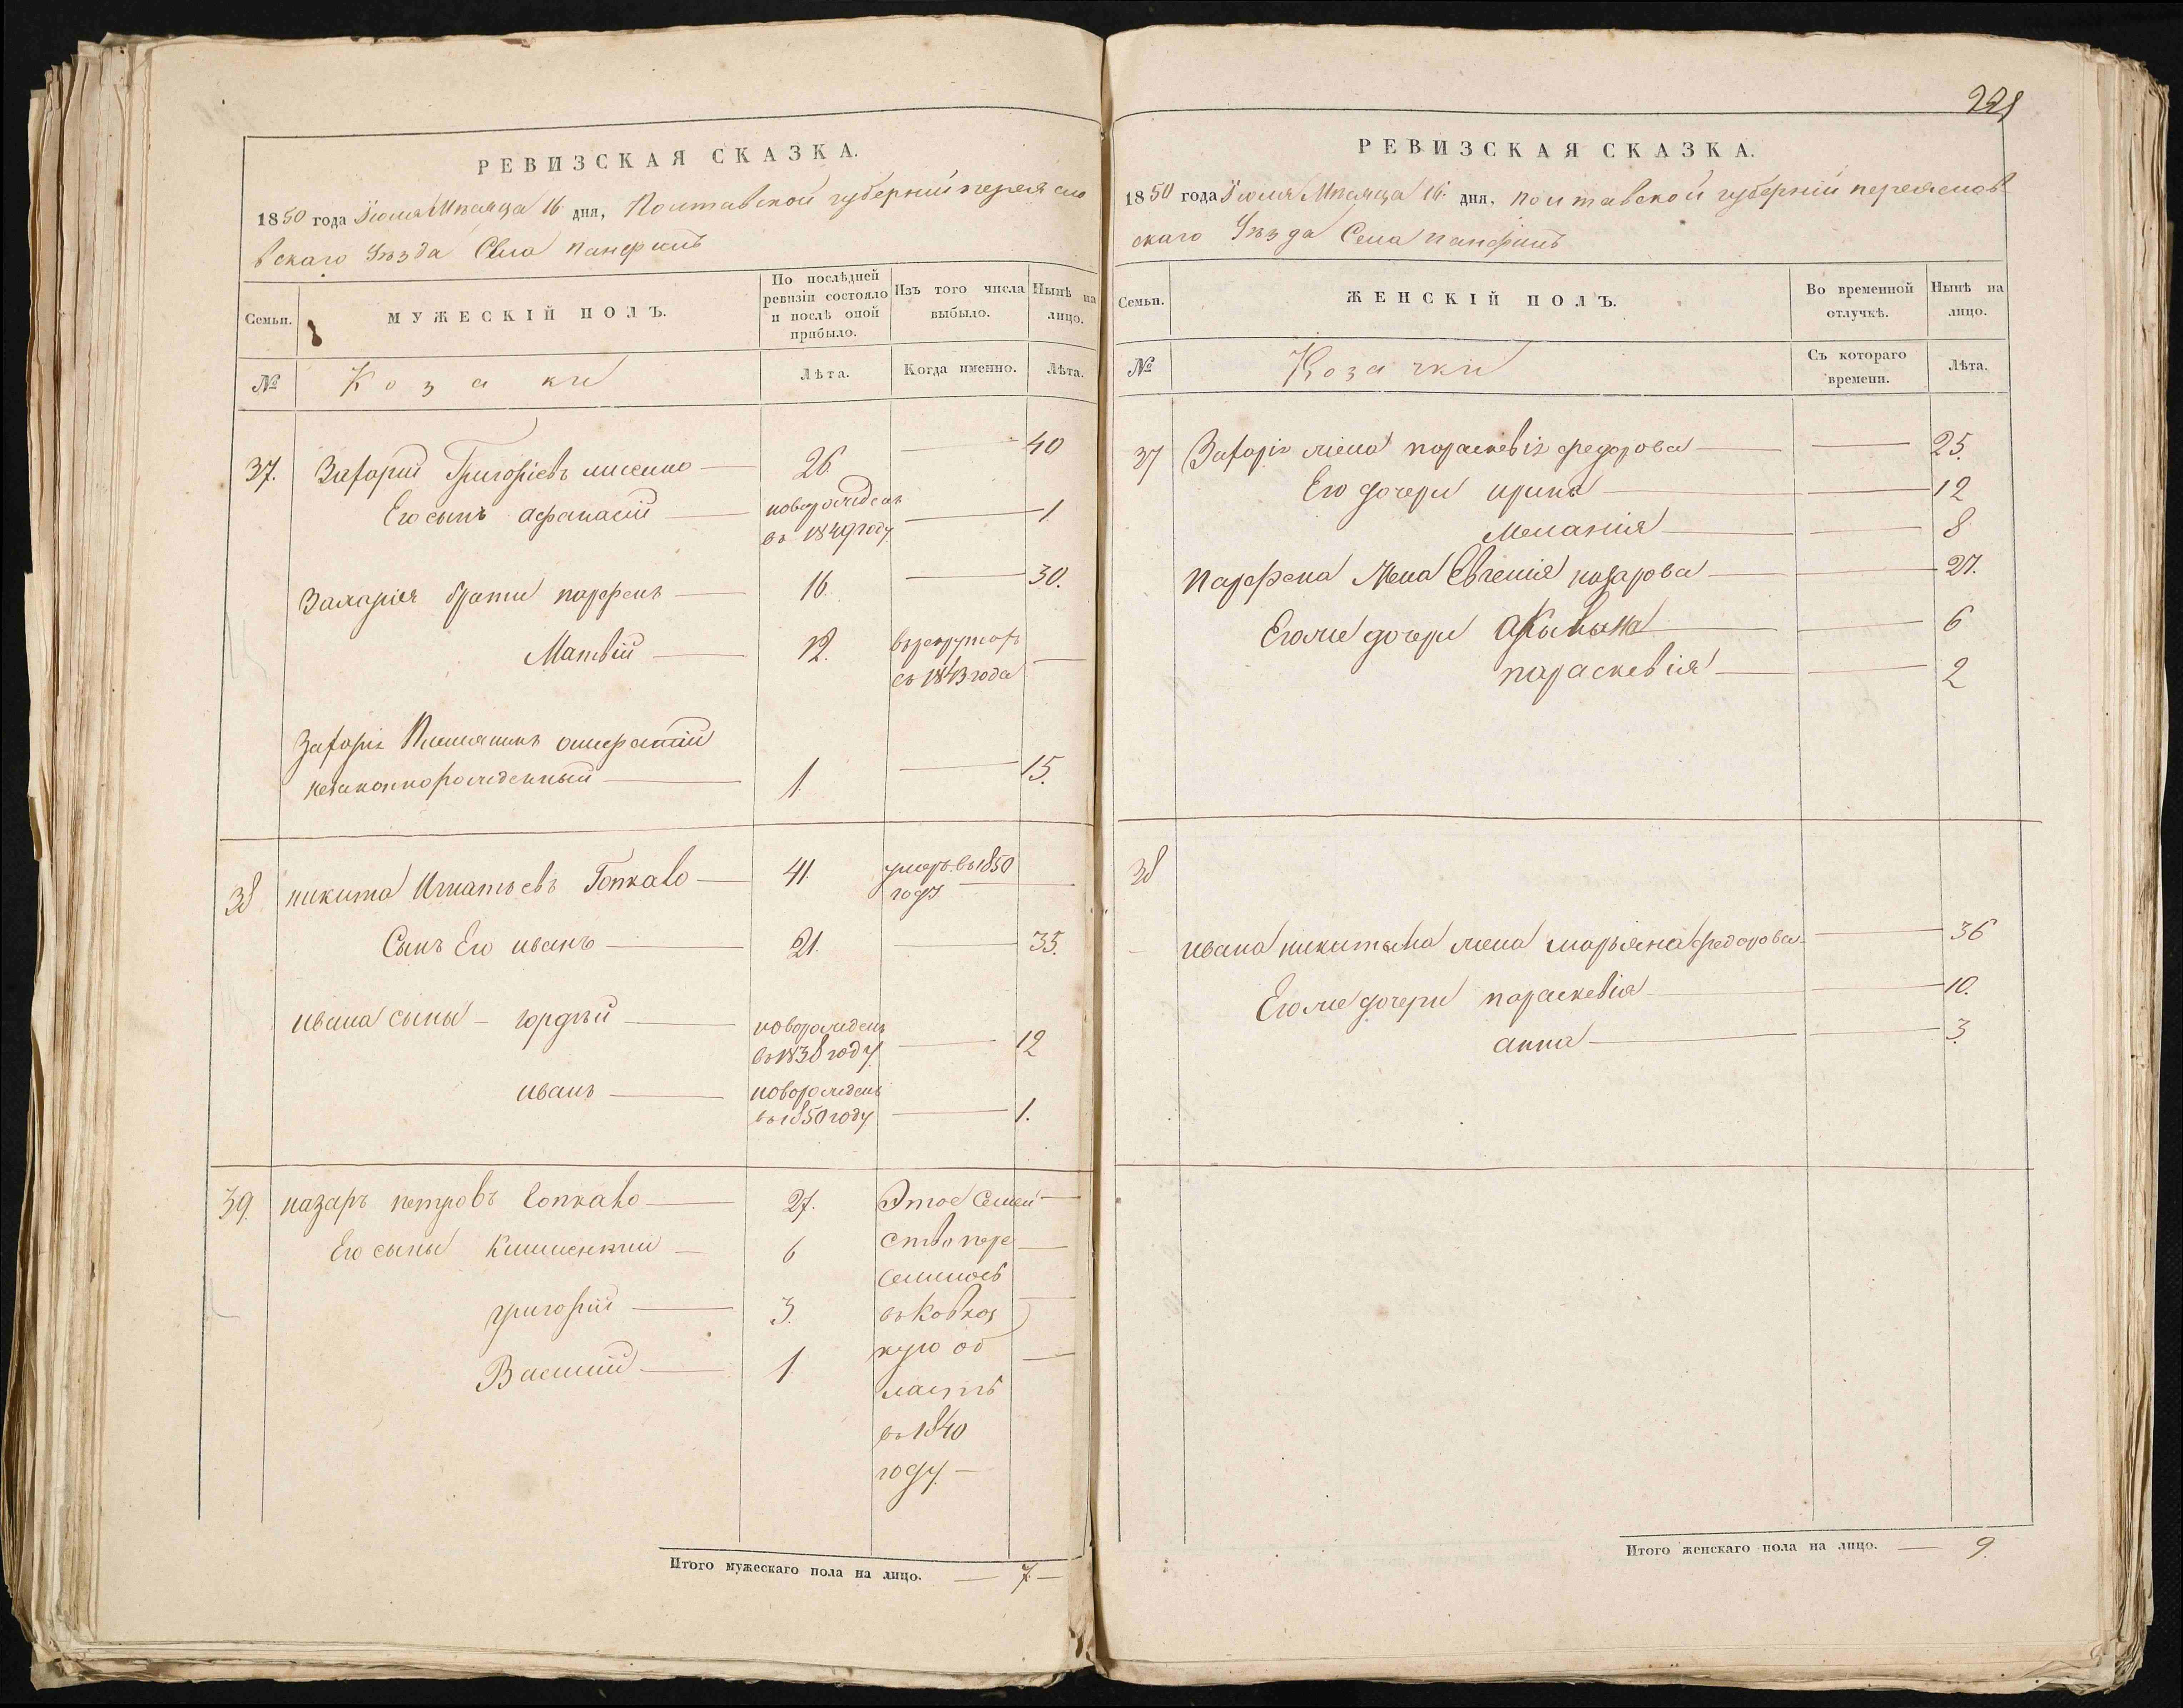 РЕВИЗСКАЯ СКАЗКА.
1850 года Іюля Мѣсяца 16 дня, Полтавской губерніи переясло
вского Уѣзда Села Панфилъ
Семьи.
МУЖЕСКІЙ ПОЛЪ.
По послѣдней ревизіи состояло и послѣ оной прибыло.
Изъ того числа выбыло.
Нынѣ на лицо.
№
Козаки
Лѣта.
Когда именно.
Лѣта.
37. Захарій Григоріевъ 26 — 40
Его сынъ Афанасій — новорожденъ
въ 1849 году — 1
Захарія братья парфенъ — 16. — 30.
Матвій — 12. в рекрутахъ
съ 1843 года —
Захарія
незаконнорожденный — 1. — 15.
38 никита Игнатьевъ Гопкало — 41. умеръ въ 1850
году —
Сынъ Его иванъ — 21. — 35.
ивана сыны - гордѣй — новорожденъ
въ 1838 году — 12
иванъ — новорожденъ
въ 1850 году — 1.
39. назаръ петровъ Гопкало — 27. Этое Семей —
Его сыны — 6 ство пере —
селилось
григорій — 3. въ Кавказ —
Василій — 1 кую об —
ласть
въ 1840
году. —
Итого мужескаго пола на лицо. — 7. —
229
РЕВИЗСКАЯ СКАЗКА.
1850 года Іюля Мѣсяца 16. дня, полтавской губерніи переяслов
скаго Уѣзда Села панфилъ
Семьи.
ЖЕНСКІЙ ПОЛЪ.
Во временной отлучкѣ.
Нынѣ на лицо.
№
Козачки
Съ котораго времени.
Лѣта.
37 Захарія жена параскевія федорова — — 25.
Его дочери ирина — — 12
Меланія — — 8
парфена Жена Евгенія назарова — — 27.
Его же дочери Акилына — — 6
параскевія — — 2
38
- ивана никитына жена марьяна федорова — — 36
Его же дочери параскевія — — 10.
анна — — 3
Итого женскаго пола на лицо. — 9.